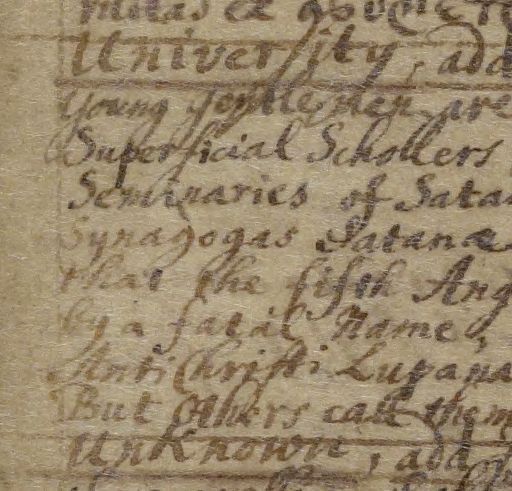 University, add
Young Gentlemen are
Superficial Schollers
Seminaries of Sata
Synagogas Satanæ
that the fifth Ang
by a fatal Name,
AntiChristi Lupana
But others call them
UnKnown, add